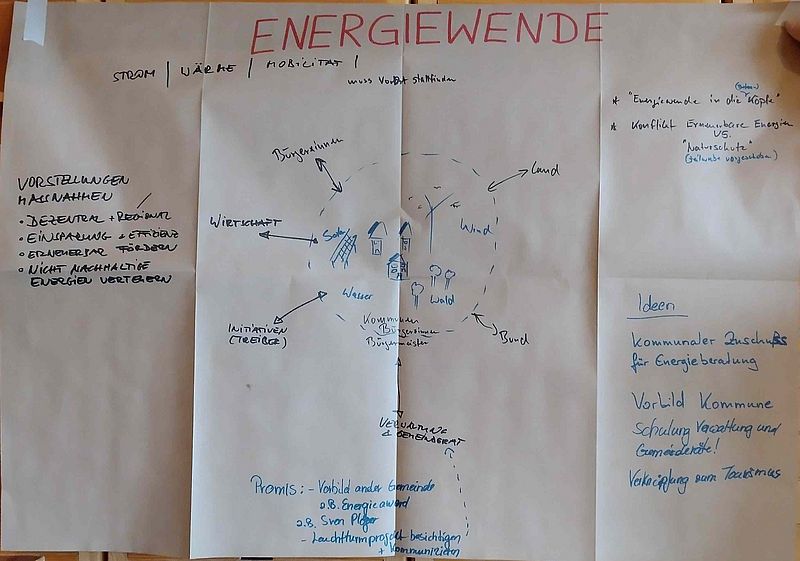 ENERGIEWENDE
STROM | WÄRME | MOBILITÄT |
muss vor Ort stattfinden
VORSTELLUNGEN /
MASSNAHMEN
• DEZENTRAL + REGIONAL
• EINSPARUNG + EFFIZIENZ
• ERNEUERBAR FÖRDERN
• NICHT NACHHALTIGE
ENERGIEN VERTEUERN
Bürgerinnen
WIRTSCHAFT
INITIATIVEN
(TREIBER)
Land
Bund
Solar
Wind
Wasser
Wald
Kommunen
Bürgerinnen
Bürgermeister
VERWALTUNG
& GEMEINDERAT
Promis: - Vorbild ander Gemeinde
z.B. Energieaward
z.B. Sven Plöger
- Leuchtturmprojekt besichtigen
+ Kommunizieren
* "Energiewende in die Köpfe"
* Konflikt Erneuerbare Energien
VS.
"Naturschutz"
(teilweise vorgeschoben)
Ideen
Kommunaler Zuschuss
für Energieberatung
Vorbild Kommune
Schulung Verwaltung und
Gemeinderäte!
Verknüpfung zum Tourismus